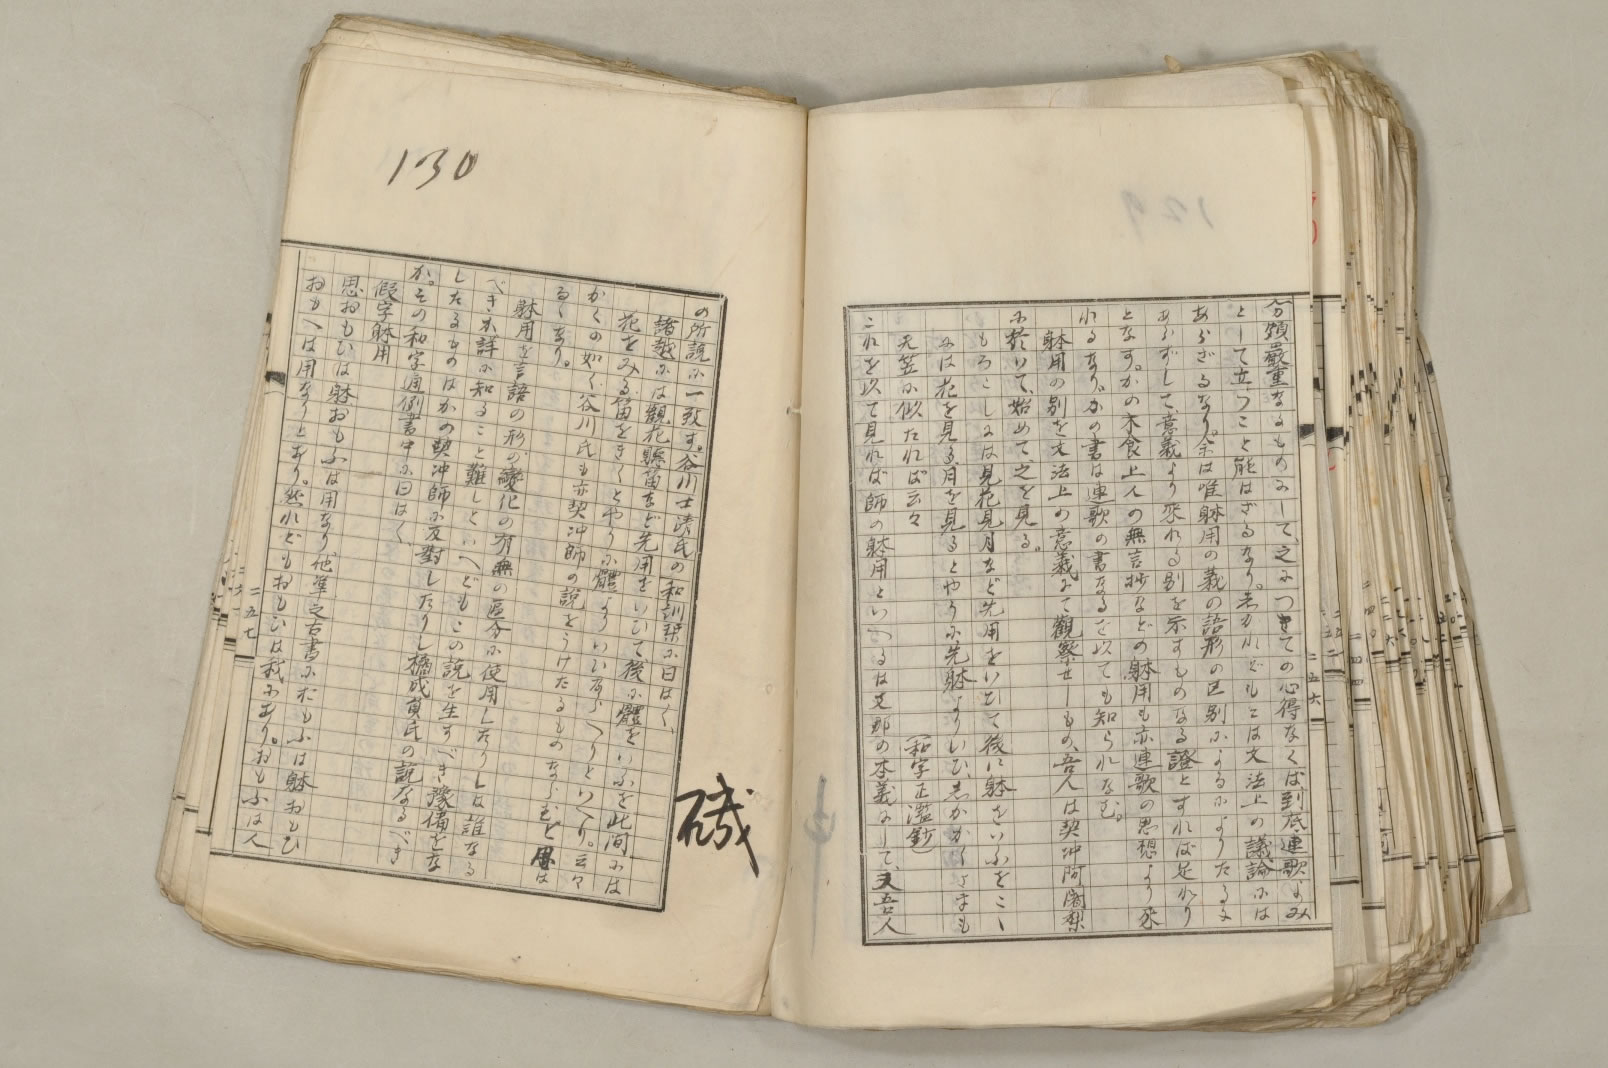 分領嚴重なるものにして、之につきての心得なくば到底連歌よみ
として立つこと能はざるなり。されどもこは文法上の議論には
あらざるなり。余は唯躰用の義の語形の区別によるにあらず
して意義より來れる別を示すものなる證とすれば足れり
となす。かの木食上人の無言抄などの躰用も亦連歌の思想より來
れるなり。かの書は連歌の書なるを以ても知られなむ。
躰用の別を文法上の意義にて觀察せしもの、吾人は契冲阿闍梨
に於いて、始めて、之を見る。
もろこしには見花見月など先用をいひて後に躰をいふをこゝ
には花を見る月を見るとやうに先躰よりいひ、しかかくさまも
天竺に似たれば云々
(和字正濫鈔)
これを以て見れば師の躰用といへるは支那の本義にして、又吾人
二五六
129
130
の所説に一致す。谷川士清氏の和訓栞に曰はく、
諸越には觀花聽笛など先用をいひて後に體をいふを此間には
花をみる笛をきくとやうに體よりいひならへりといへり。云々
かくの如く谷川氏も亦契冲師の説をうけたるものならむと思は
るゝなり。
躰用を言語の形の變化の有無の區分に使用したりしは誰なる
べきか詳に知ること難しといへどもこの説を生すべき豫備をな
したるものはかの契冲師に反對したりし橘成員氏の説なるべき
か。その和字通例書中に曰はく、
假字躰用
思おもひは躰おもふは用なり他準之古書におもふは躰おもひ
おもへは用なりとあり。然れどもおもひは我にあり。おもふは人
二五七
磯